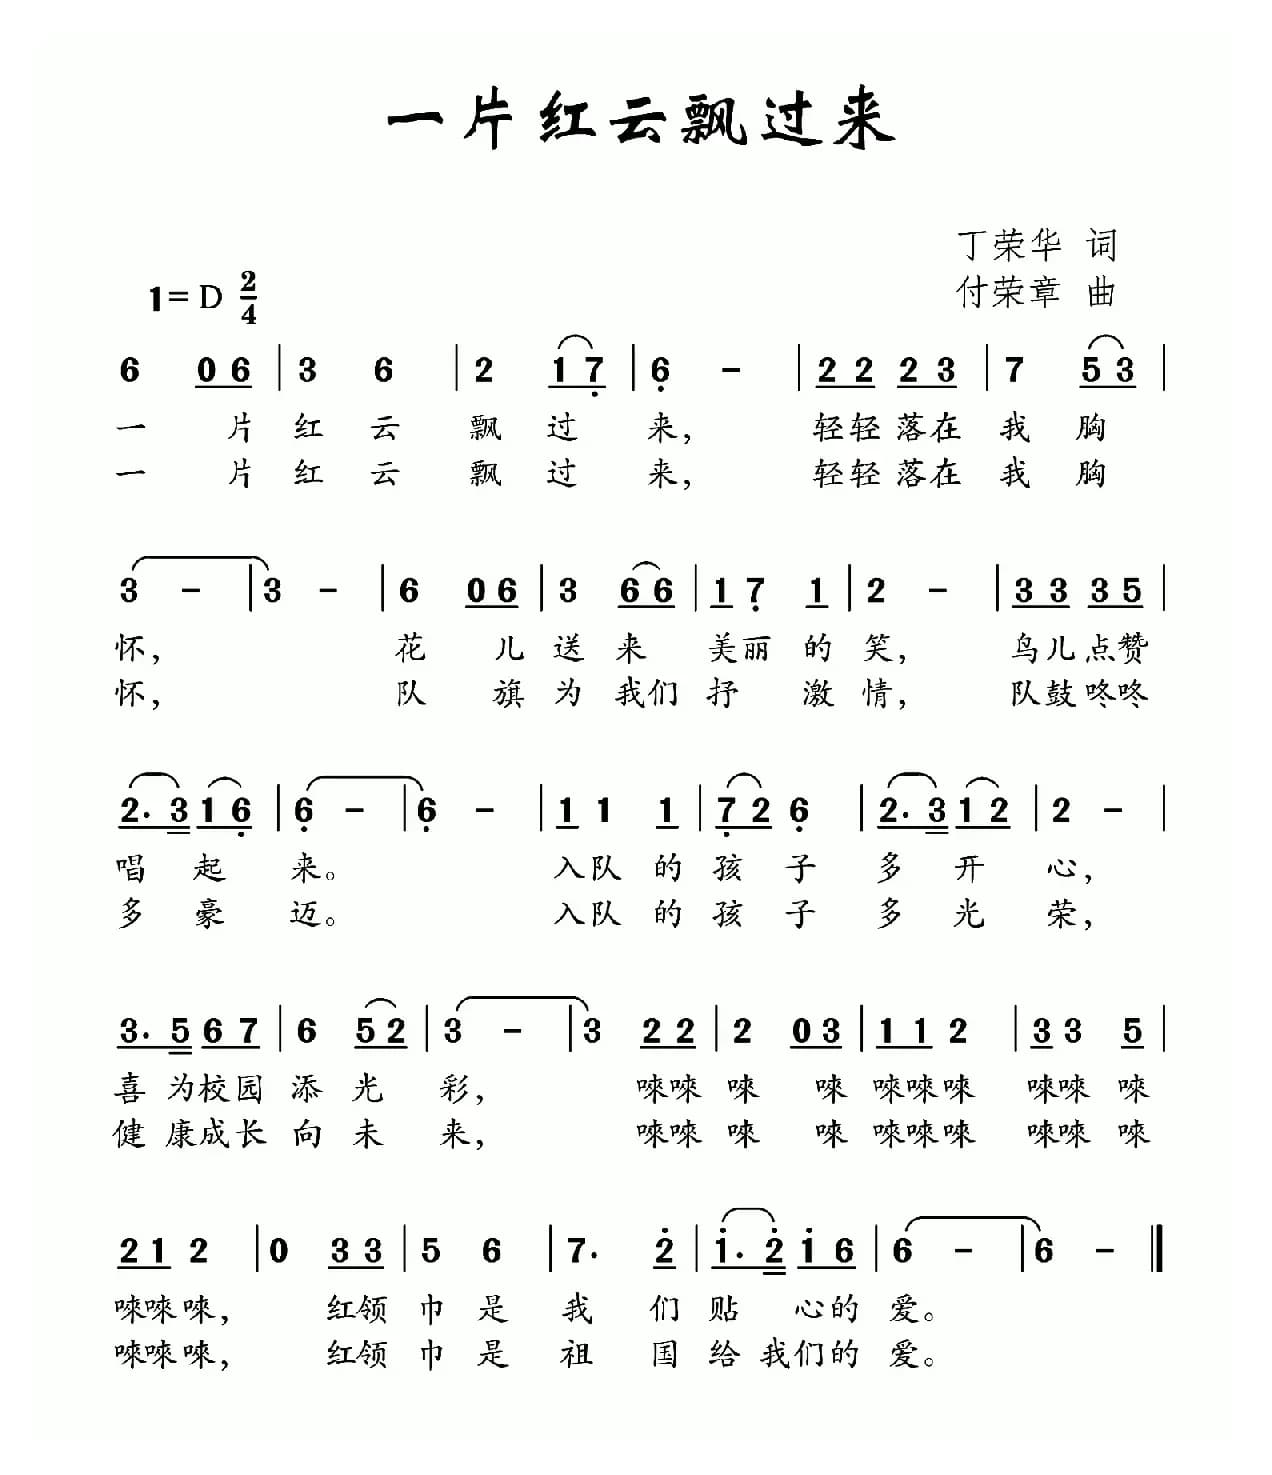 一片红云飘过来
丁荣华 词
1=D 2/4
付荣章 曲
6 06 | 3 6 | 2 17 | 6 - | 22 23 | 7 53 |
一 片 红 云 飘 过 来， 轻轻 落在 我 胸
一 片 红 云 飘 过 来， 轻轻 落在 我 胸
3 - | 3 - | 6 06 | 3 66 | 1 7 1 | 2 - | 33 35 |
怀， 花 儿 送 来 美丽 的 笑， 鸟儿点赞
怀， 队 旗 为 我们 抒 激 情， 队鼓咚咚
2. 3 16 | 6 - | 6 - | 1 1 1 | 72 6 | 2. 3 12 | 2 - |
唱 起 来。 入队 的 孩 子 多 开 心，
多 豪 迈。 入队 的 孩 子 多 光 荣，
3. 5 67 | 6 52 | 3 - | 3 22 | 2 03 | 11 2 | 3 3 5 |
喜 为校园 添 光 彩， 唻唻 唻 唻 唻唻唻 唻唻 唻
健 康成长 向 未 来， 唻唻 唻 唻 唻唻唻 唻唻 唻
21 2 | 0 33 | 5 6 | 7. 2 | 1. 2 16 | 6 - | 6 - ‖
唻唻 唻， 红领 巾 是 我 们 贴 心的 爱。
唻唻 唻， 红领 巾 是 祖 国 给 我们的 爱。